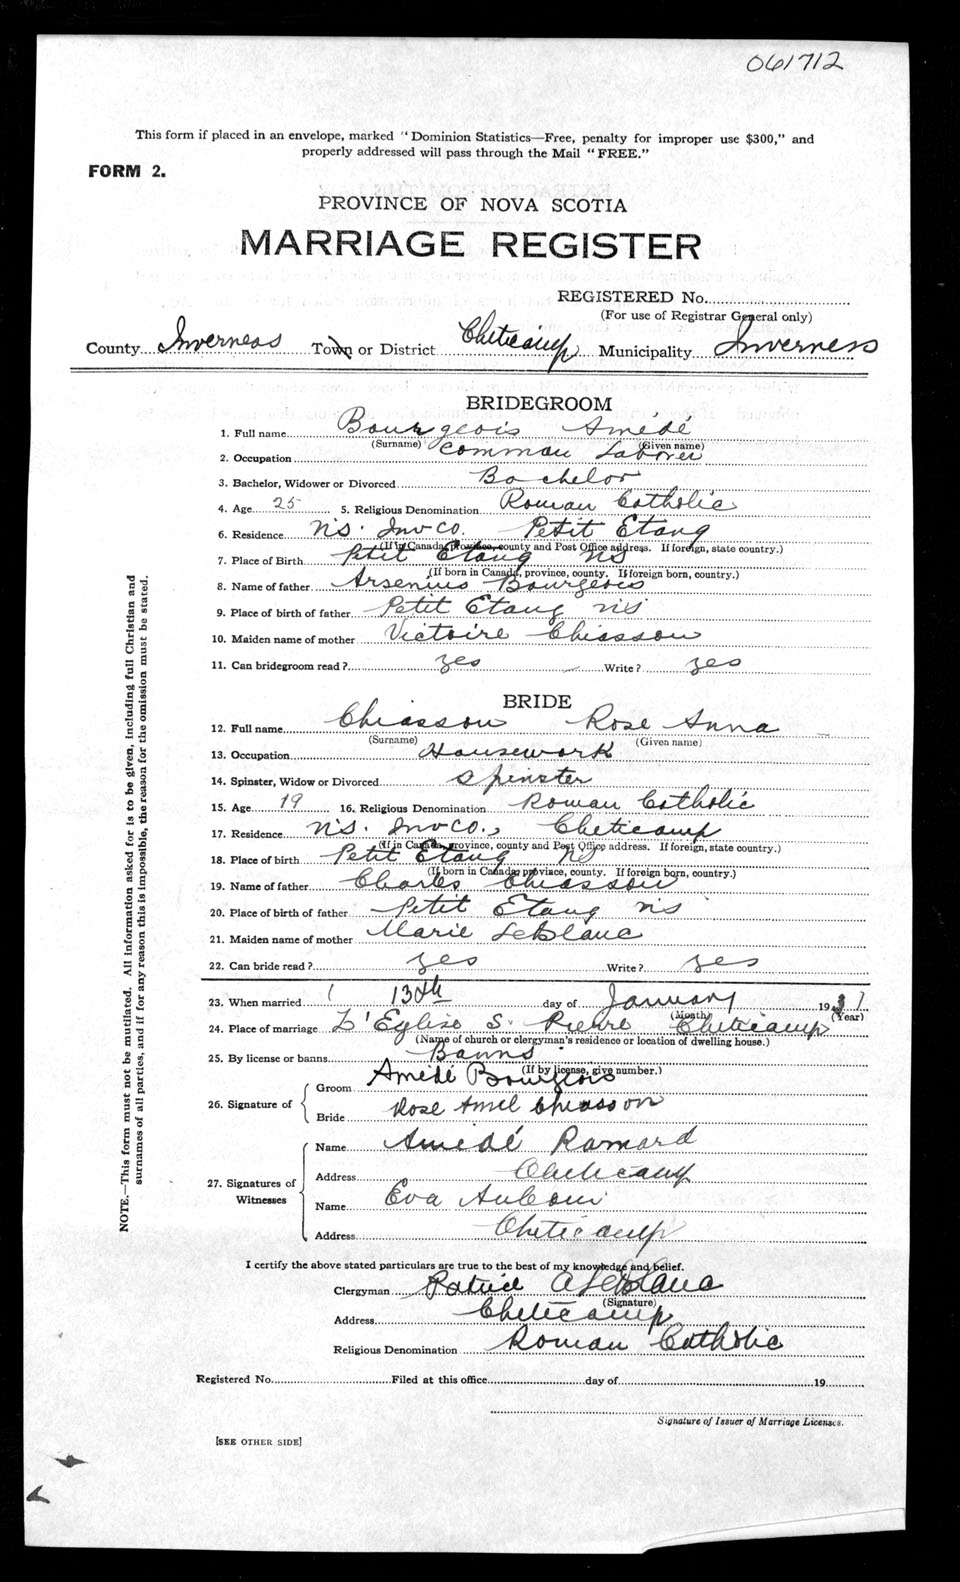 061712
This form if placed in an envelope, marked "Dominion Statistics—Free, penalty for improper use $300," and
properly addressed will pass through the Mail "FREE."
FORM 2.
PROVINCE OF NOVA SCOTIA
MARRIAGE REGISTER
REGISTERED No.
(For use of Registrar General only)
County Inverness Town or District Cheticamp Municipality Inverness
BRIDEGROOM
1. Full name Bourgeois Amédé
(Surname) (Given name)
2. Occupation Common Laborer
3. Bachelor, Widower or Divorced Bachelor
4. Age 25 5. Religious Denomination Roman Catholic
6. Residence N.S. Inv Co. Petit Etang
(If in Canada, province, county and Post Office address. If foreign, state country.)
7. Place of Birth Petit Etang NS
(If born in Canada, province, county. If foreign born, country.)
8. Name of father Arsenius Bourgeois
9. Place of birth of father Petit Etang NS
10. Maiden name of mother Victoire Chiasson
11. Can bridegroom read? yes Write? yes
BRIDE
12. Full name Chiasson Rose Anna
(Surname) (Given name)
13. Occupation Housework
14. Spinster, Widow or Divorced Spinster
15. Age 19 16. Religious Denomination Roman Catholic
17. Residence N.S. Inv Co., Cheticamp
(If in Canada, province, county and Post Office address. If foreign, state country.)
18. Place of birth Petit Etang NS
(If born in Canada, province, county. If foreign born, country.)
19. Name of father Charles Chiasson
20. Place of birth of father Petit Etang NS
21. Maiden name of mother Marie LeBlanc
22. Can bride read? yes Write? yes
23. When married 13th day of January 1937
(Month) (Year)
24. Place of marriage L'Eglise S. Pierre Cheticamp
(Name of church or clergyman's residence or location of dwelling house.)
25. By license or banns Banns
(If by license, give number.)
26. Signature of
Groom Amédé Bourgeois
Bride Rose Chiasson
27. Signatures of Witnesses
Name Amédé
Address Cheticamp
Name Eva Aucoin
Address Cheticamp
I certify the above stated particulars are true to the best of my knowledge and belief.
Clergyman A LeBlanc
(Signature)
Address Cheticamp
Religious Denomination Roman Catholic
Registered No. Filed at this office day of 19
Signature of Issuer of Marriage Licenses.
[SEE OTHER SIDE]
NOTE.—This form must not be mutilated. All information asked for is to be given, including full Christian and
surnames of all parties, and if for any reason this is impossible, the reason for the omission must be stated.